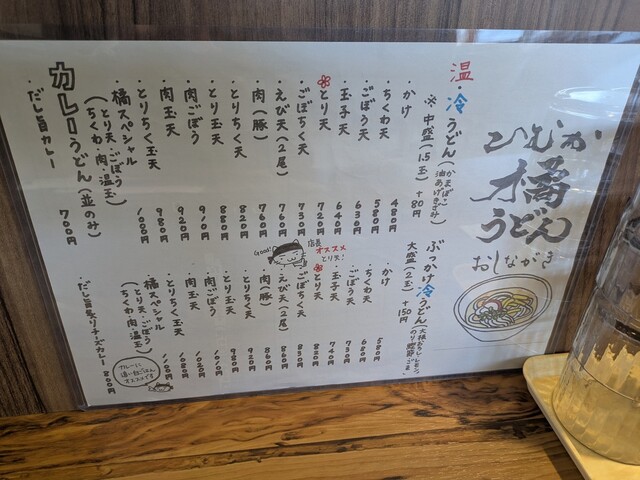 ひむか
橘
うどん
おしながき
温・冷うどん(かまぼこ
油あげきざみ)
※中盛(1.5玉)+80円
大盛(2玉)+150円
・かけ 480円
・ちくわ天 580円
・ごぼう天 630円
・玉子天 640円
・とり天 720円
・ごぼちく天 730円
・えび天(2尾) 760円
・肉(豚) 760円
・とりちく天 820円
・とり玉天 880円
・肉ごぼう 910円
・肉玉天 920円
・とりちく玉天 980円
・橘スペシャル
(とり天・ごぼう
ちくわ・肉・温玉)
カレーうどん(並のみ)
・だし旨カレー 700円
店長
オススメ
とり天!
Good!
ぶっかけ冷うどん
・かけ 580円
・ちくわ天 680円
・ごぼう天 730円
・玉子天 740円
・とり天 820円
・ごぼちく天 830円
・えび天(2尾) 860円
・肉(豚) 860円
・とりちく天 920円
・とり玉天 980円
・肉ごぼう 1010円
・肉玉天
・とりちく玉天 1080円
・橘スペシャル
(とり天・ごぼう
ちくわ・肉・温玉)
・だし旨炙りチーズカレー 800円
カレーに
オススメです